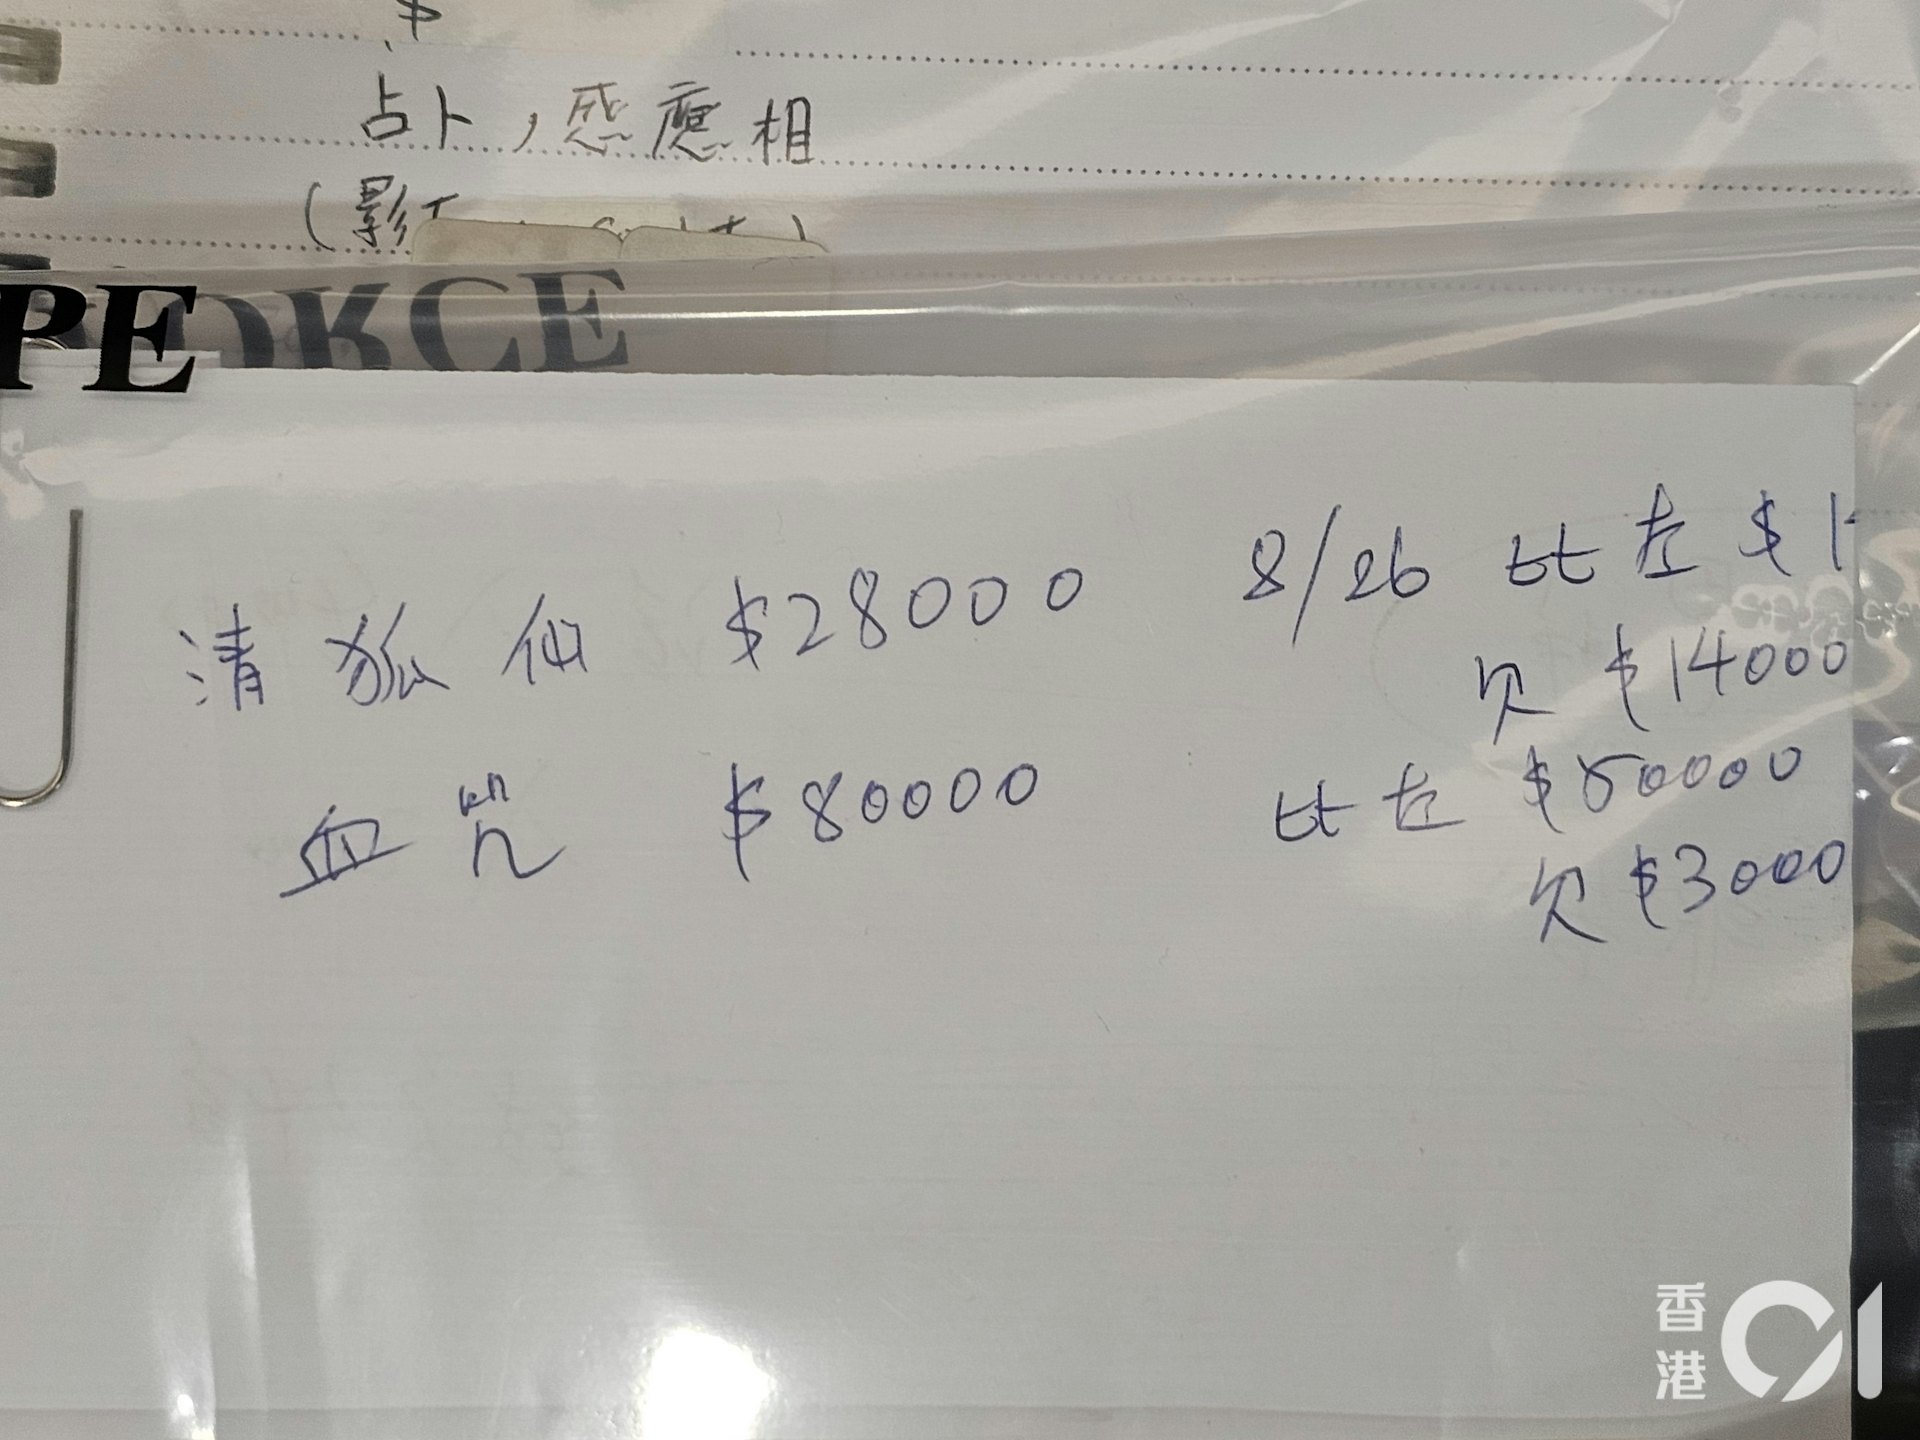 $
占卜，感應相
(影
PE
ORCE
清狐仙 $28000 8/26 比左 $1
欠 $14000
血咒 $80000 比左 $50000
欠 $3000
香港01